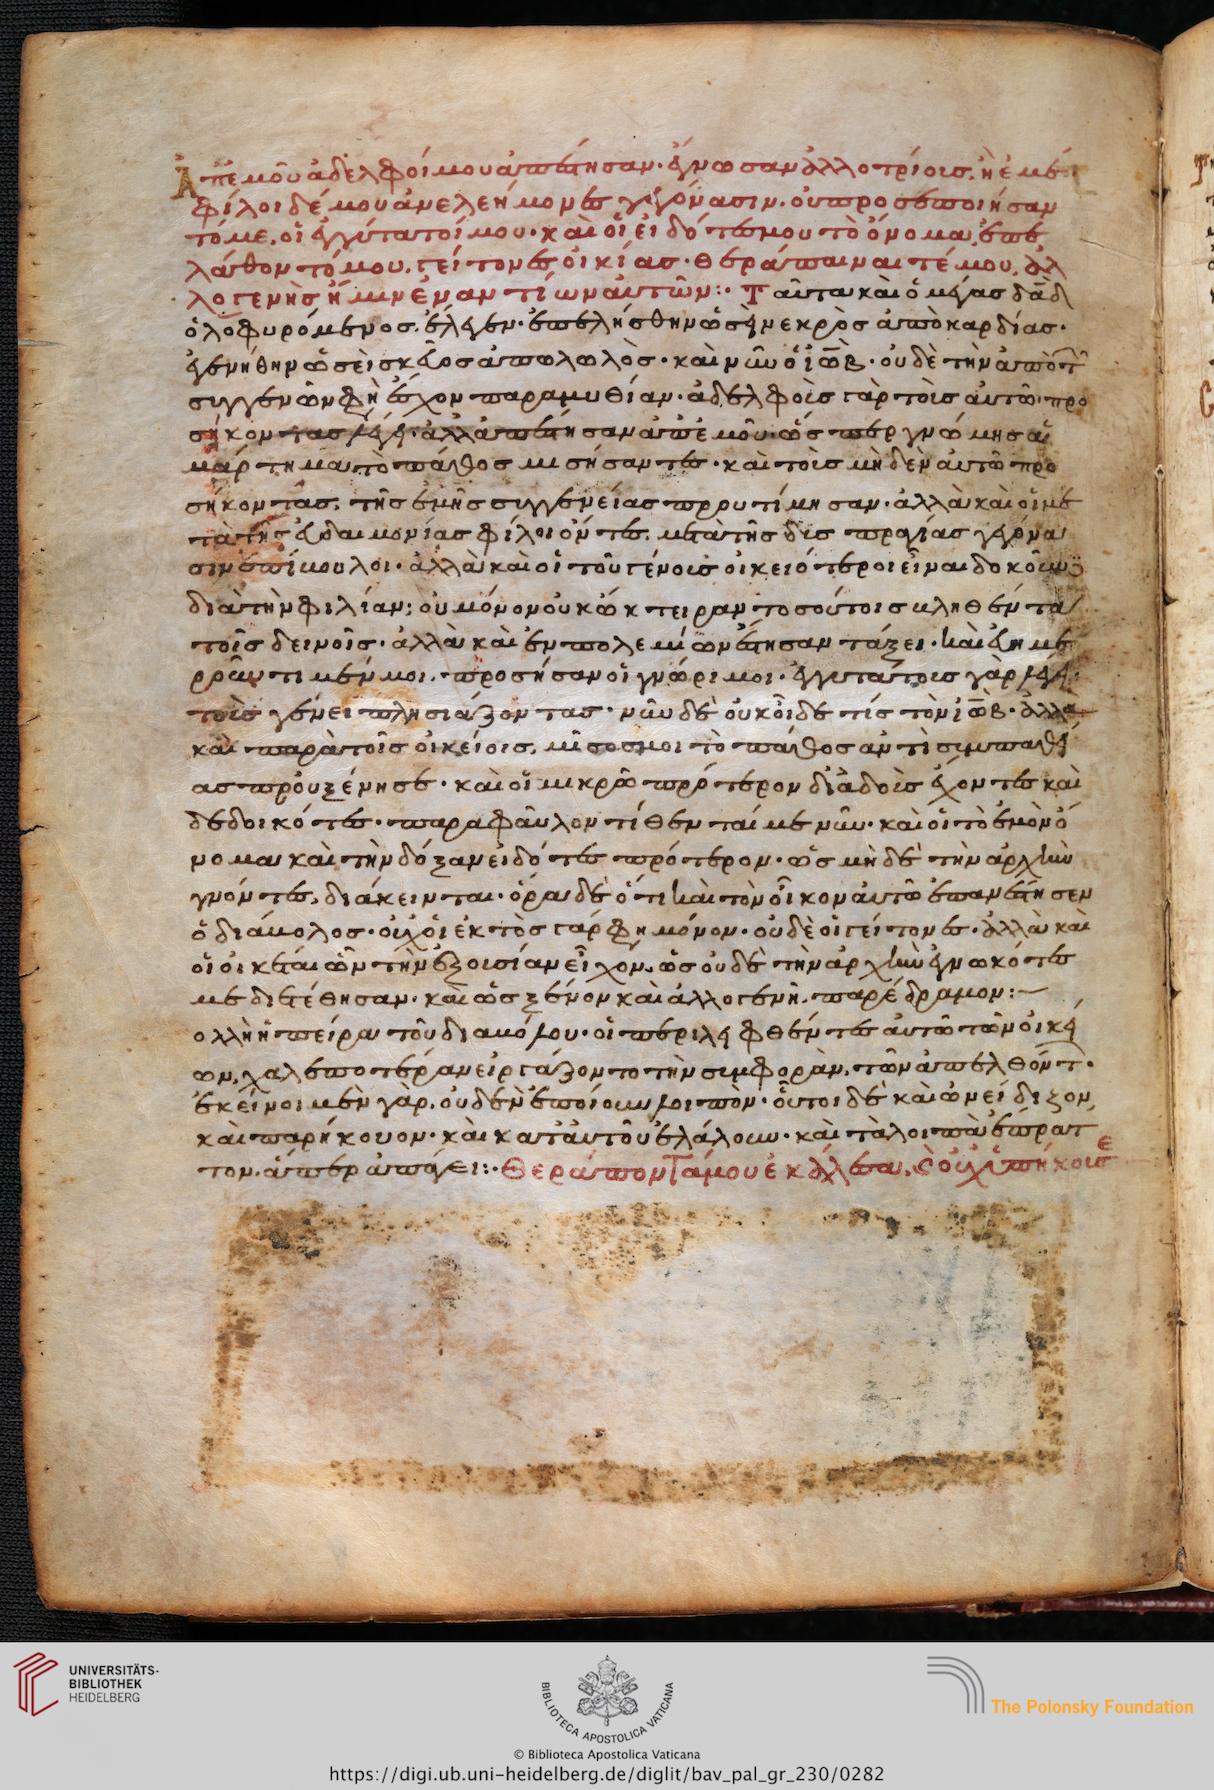 Ἀπ' ἐμοῦ ἀδελφοί μου ἀπέστησαν· ἔγνωσαν ἀλλοτρίοις, ἢ ἐμέ·
φίλοι δέ μου ἀνελεήμονες γεγόνασιν. οὐ προσεποιήσαν
τό με, οἱ ἐγγύτατοί μου· καὶ οἱ εἰδότες μου τὸ ὄνομα, ἐπε
λάθοντό μου. γείτονες οἰκίας· θεράπαιναι τέ μου, ἀλ
λογενὴς ἤμην ἐναντίων αὐτῶν:· Ταῦτα καὶ ὁ μέγας δᾱδ
ὀλοφυρόμενος, ἔλεγεν· ἐπελήσθην ὡσεὶ νεκρὸς ἀπὸ καρδίας·
ἐγενήθην ὡσεὶ σκεῦος ἀπολωλὸς· καὶ νῦν ὁ ἰὼβ· οὐδὲ τὴν ἀπὸ τ
συγγενῶν φη ἔχον παραμυθίαν· ἀδελφοὶς γὰρ τοὶς αὐτῶ προ
σήκοντας λέγει· ἀλλ' ἀπέστησαν ἀπ' ἐμοῦ· ὥσπερ γνώμης ἁ
μάρτημα, τὸ πάθος μισήσαντες· καὶ τοὶς μηδὲν αὐτῶ προ
σήκοντας, τῆς ἐμῆς συγγενείας προυτίμησαν· ἀλλὰ καὶ οἱ με
τὰ τῆς εὐδαιμονίας φίλοι ὄντες, μετὰ τῆς δυσπραγίας γεγόνα
σιν ἐπίβουλοι· ἀλλὰ καὶ οἱ τοῦ γένους οἰκειότεροι εἶναι δοκοῦν
διὰ τὴν φιλίαν· οὐ μόνον οὐκ ᾤκτειραν τοσούτοις βληθέντα
τοῖς δεινοῖς· ἀλλὰ καὶ ἐν πολεμίων ἔστησαν τάξει· καὶ εὐημε
ροῦντι μέν μοι, προσῆσαν οἱ γνώριμοι· ἐγγυτάτους γὰρ λέγει
τοὺς γένει πλησιάζοντας· νῦν δὲ οὐκ οἶδέ τις τὸν ἰὼβ· ἀλλὰ
καὶ παρὰ τοῖς οἰκείοις, μῖσός μοι τὸ πάθος ἀντὶ συμπαθεί
ας προὐξένησε· καὶ οἱ μικρῶ πρότερον δι' αἰδοὺς ἔχοντες καὶ
δεδοικότες· παρὰ φαῦλον τίθενταί με νῦν· καὶ οἱ τὸ ἐμὸν ὄ
νομα καὶ τὴν δόξαν εἰδότες πρότερον· ὡς μὴ δὲ τὴν ἀρχὴν
γνόντες, διάκεινται· ὅρα δὲ ὅτι καὶ τὸν οἶκον αὐτῶ ἐπανέστησεν
ὁ διάβολος· οὐχ οἱ ἐκτὸς γάρ φη μόνον· οὐδὲ οἱ γείτονες· ἀλλὰ καὶ
οἱ οἰκέται ὧν τὴν ἐξουσίαν εἶχον, ὡς οὐδὲ τὴν ἀρχὴν ἐγνωκότες
με διετέθησαν· καὶ ὡς ξένον καὶ ἀλλογενῆ, παρέδραμον:—
ολλὴ ἡ πεῖρα τοῦ διαβόλου· οἱ περιλειφθέντες αὐτῶ τῶν οἰκεί
ων, χαλεπωτέραν εἰργάζοντο τὴν συμφορὰν, τῶν ἀπελθόντ·
ἐκείνοι μὲν γὰρ, οὐδὲν ἐποίουν λοιπὸν· οὗτοι δὲ καὶ ὠνείδιζον,
καὶ παρήκουον· καὶ κατ' αὐτοῦ ἐλάλουν· καὶ τὰ λοιπὰ ἔπρατ
τον. ἅπερ ἐπάγει:· Θεράποντά μου ἐκάλεσα, καὶ οὐχ ὑπήκουσε
UNIVERSITÄTS-
BIBLIOTHEK
HEIDELBERG
BIBLIOTECA APOSTOLICA VATICANA
The Polonsky Foundation
© Biblioteca Apostolica Vaticana
https://digi.ub.uni-heidelberg.de/diglit/bav_pal_gr_230/0282